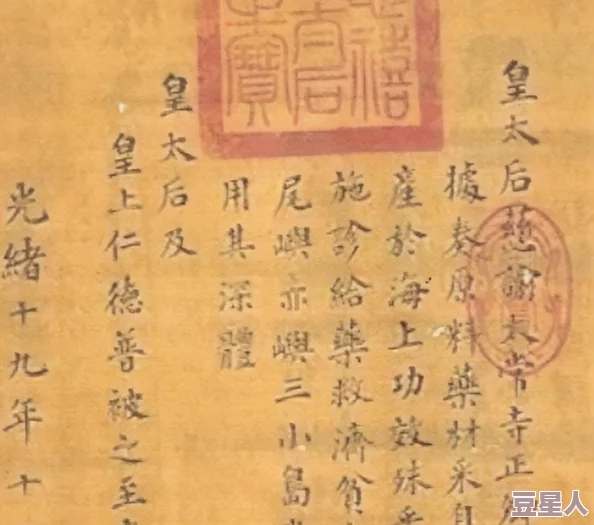 皇太后慈諭太常寺正
據奏原料藥材采自
產於海上功效殊
施診給藥救濟貧
尾嶼赤嶼三小島
用其深體
皇太后及
皇上仁德普被之至
光緒十九年十
豆星人